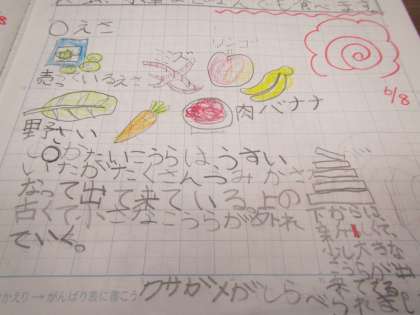 んでも食べます
○えさ
売っているえさ
ミミズ
リンゴ
バナナ
肉
野さい
6/8
○かたいこうらは、うすい
いたがたくさんつみかさ
なって出て来ている。上の
古くて小さなこうらが外れ
ていく。
下からは
新しくて、
少し大きな
こうらが
出て来る。
クサガメがしらべられました
かえり→がんばり表に書こう